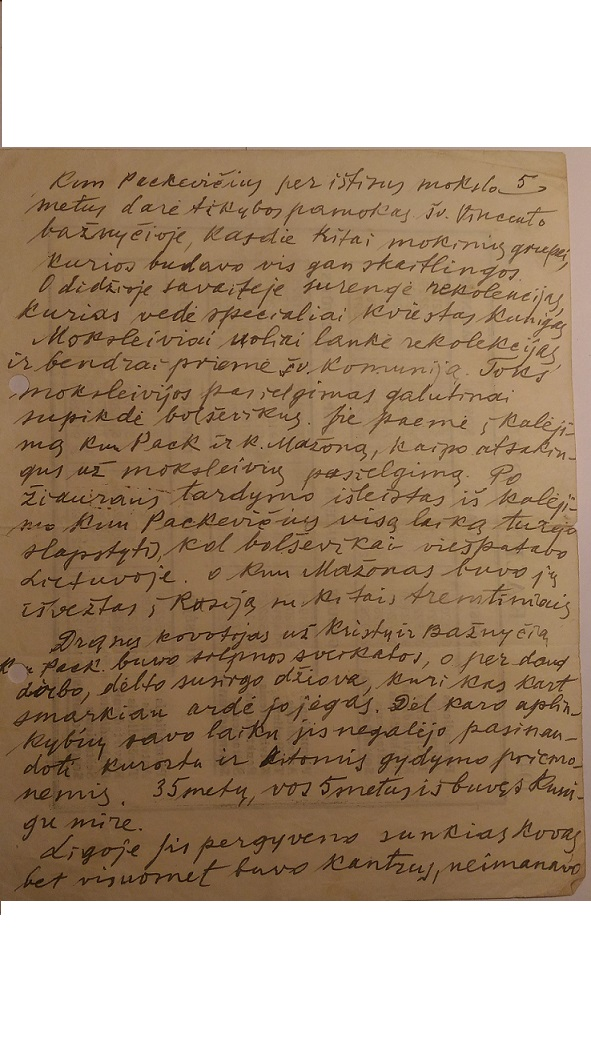 Kun Packevičius per ištisus mokslo 5
metus darė tikybos pamokas Šv. Vincento
bažnyčioje, kasdie kitai mokinių grupei,
kurios budavo vis gan skaitlingos.
O didžioje savaitėje surengė rekolencijas,
kurias vedė specialiai kviestas kunigas
Moksleiviai uoliai lankė rekolekcijas
ir bendrai priėmė šv. Komuniją. Toks
moksleivijos pasielgimas galutinai
supikdė bolševikus. Jie paėmė į kalėji-
mą kun Pack ir k. Mažoną, kaipo atsakin-
gus už moksleivių pasielgimą. Po
žiauraus tardymo išleistas iš kalėji-
mo kun Packevičius visą laiką turėjo
slapstytis, kol bolševikai viešpatavo
Lietuvoje. O kun Mažonas buvo jų
išvežtas į Rusiją su kitais tremtiniais
Drąsus kovotojas už Kristų ir Bažnyčią
Kun Pack. buvo silpnos sveikatos, o per daug
dirbo, dėlto susirgo džiova, kuri kas kart
smarkiau ardė jo jėgas. Dėl karo aplin-
kybių savo laiku jis negalėjo pasinau-
doti kurortu ir kitomis gydymo priemo-
nėmis. 35 metų, vos 5 metus išbuvęs kuni-
gu mirė.
Ligoje jis pergyveno sunkias kovas
bet visuomet buvo kantrus, neimanavo